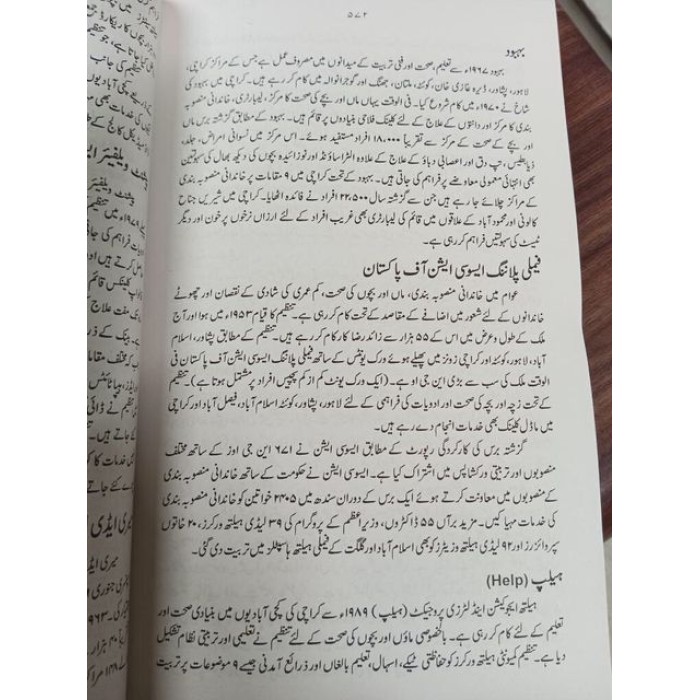 ۵۷۲
بہبود
بہبود ۱۹۶۷ء سے تعلیم، صحت اور فنی تربیت کے میدانوں میں مصروف عمل ہے جس کے مراکز کراچی،
لاہور، پشاور، ڈیرہ غازی خان، کوئٹہ، ملتان، جھنگ اور گوجرانوالہ میں کام کر رہے ہیں۔ کراچی میں بہبود کی
شاخ نے ۱۹۷۰ء میں کام شروع کیا۔ فی الوقت یہاں ماں اور بچے کی صحت کا مرکز، لیبارٹری، خاندانی منصوبہ
بندی کا مرکز اور دانتوں کے علاج کے لئے کلینک فلاحی بنیادوں پر قائم ہیں۔ بہبود کے مطابق گزشتہ برس ماں
اور بچے کے صحت کے مرکز سے تقریباً ۱۸،۰۰۰ افراد مستفید ہوئے۔ اس مرکز میں نسوانی امراض، جلد،
ذیابطیس، تپ دق اور اعصابی دباؤ کے علاج کے علاوہ الٹراساؤنڈ اور نوزائیدہ بچوں کی دیکھ بھال کی سہولتیں
بھی انتہائی معمولی معاوضے پر فراہم کی جاتی ہیں۔ بہبود کے تحت کراچی میں ۹ مقامات پر خاندانی منصوبہ بندی
کے مراکز چلائے جا رہے ہیں جن سے گذشتہ سال ۲۲،۵۰۰ افراد نے فائدہ اٹھایا۔ کراچی میں شیریں جناح
کالونی اور محمود آباد کے علاقوں میں قائم کی لیبارٹری بھی غریب افراد کے لئے ارزاں نرخوں پر خون اور دیگر
ٹیسٹ کی سہولتیں فراہم کر رہی ہے۔
فیملی پلاننگ ایسوسی ایشن آف پاکستان
عوام میں خاندانی منصوبہ بندی، ماں اور بچوں کی صحت، کم عمری کی شادی کے نقصان اور چھوٹے
خاندانوں کے لئے شعور میں اضافے کے مقاصد کے تحت کام کر رہی ہے۔ تنظیم کا قیام ۱۹۵۳ء میں ہوا اور آج
ملک کے طول و عرض میں اس کے ۵۵ ہزار سے زائد رضا کار کام کر رہے ہیں۔ تنظیم کے مطابق پشاور، اسلام
آباد، لاہور، کوئٹہ اور کراچی زونز میں پھیلے ہوئے ورک یونٹس کے ساتھ فیملی پلاننگ ایسوسی ایشن آف پاکستان فی
الوقت ملک کی سب سے بڑی این جی او ہے۔ (ایک ورک یونٹ کم از کم پچیس افراد پر مشتمل ہوتا ہے)۔ تنظیم
کے تحت زچہ اور بچہ کی صحت اور ادویات کی فراہمی کے لئے لاہور، پشاور، کوئٹہ، اسلام آباد، فیصل آباد اور کراچی
میں ماڈل کلینک بھی خدمات انجام دے رہے ہیں۔
گزشتہ برس کی کارکردگی رپورٹ کے مطابق ایسوسی ایشن نے ۶۷۱ این جی اوز کے ساتھ مختلف
منصوبوں اور تربیتی ورکشاپس میں اشتراک کیا ہے۔ ایسوسی ایشن نے حکومت کے ساتھ خاندانی منصوبہ بندی
کے منصوبوں میں معاونت کرتے ہوئے ایک برس کے دوران سندھ میں ۲۳۰۵ خواتین کو خاندانی منصوبہ بندی
کی خدمات مہیا کیں۔ مزید برآں ۵۵ ڈاکٹروں، وزیر اعظم کے پروگرام کی ۳۹ لیڈی ہیلتھ ورکرز، ۲۰ خاتون
سپروائزرز اور ۹۲ لیڈی ہیلتھ وزیٹرز کو بھی اسلام آباد اور گلگت کے فیملی ہیلتھ ہاسپٹلز میں تربیت دی گئی۔
ہیلپ (Help)
ہیلتھ ایجوکیشن اینڈ لٹرزی پروجیکٹ (ہیلپ) ۱۹۸۹ء سے کراچی کی کچی آبادیوں میں بنیادی صحت اور
تعلیم کے لئے کام کر رہی ہے۔ بالخصوص ماؤں اور بچوں کی صحت کے لئے تنظیم نے تعلیمی اور تربیتی نظام تشکیل
دیا ہے۔ تنظیم کمیونٹی ہیلتھ ورکرز کو حفاظتی ٹیکے، اسہال، تعلیم بالغاں اور ذرائع آمدنی جیسے ۹ موضوعات پر تربیت